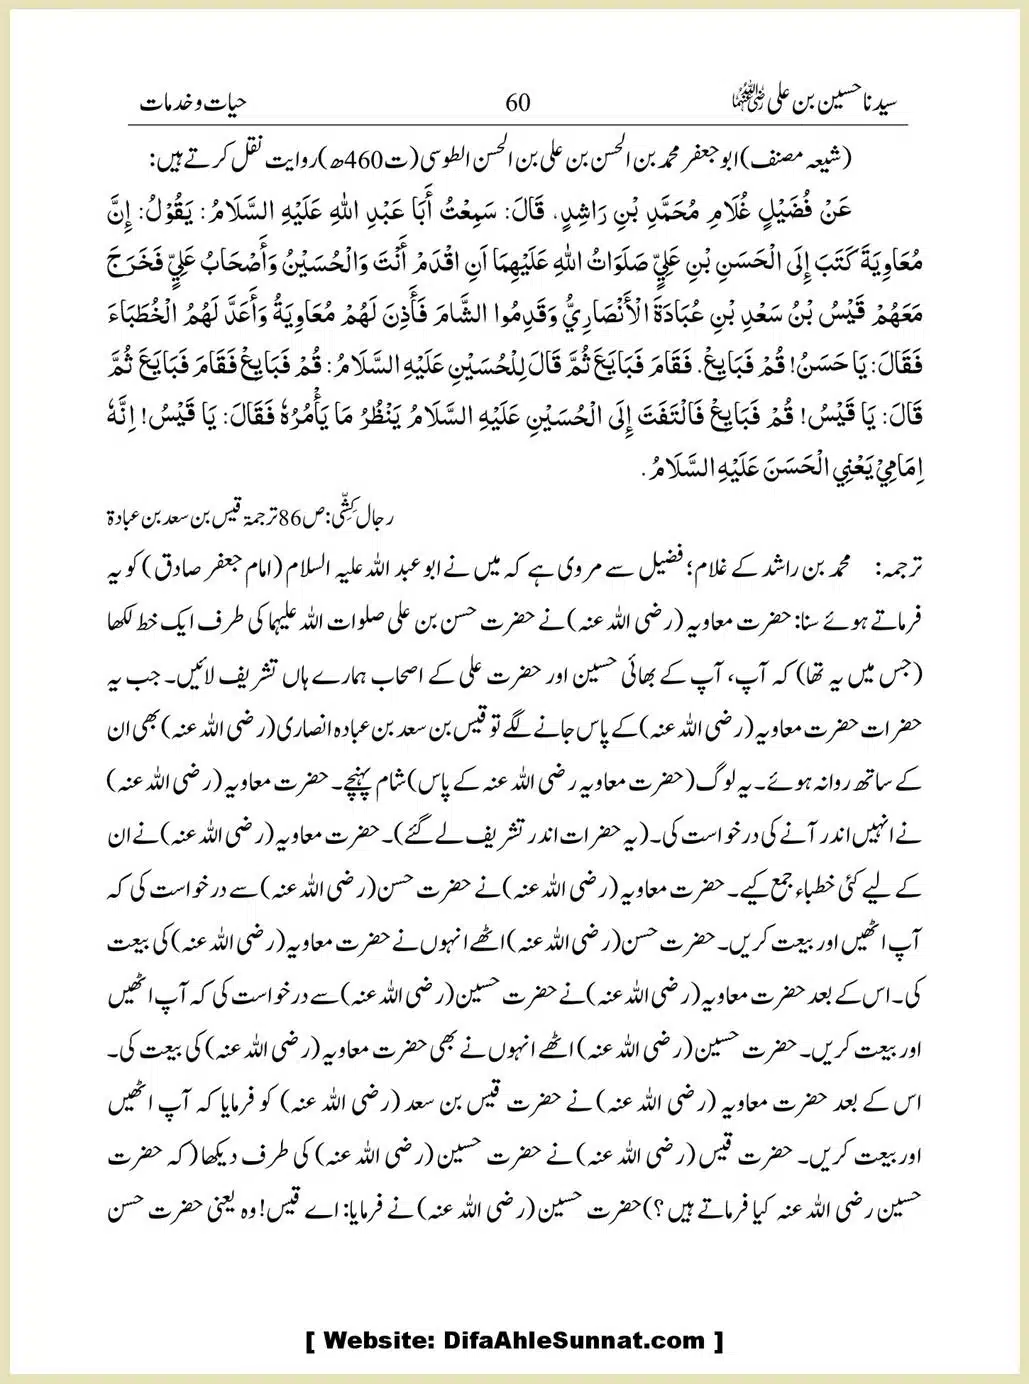 سیدنا حسین بن علی رضی اللہ عنہما 60 حیات و خدمات
(شیعہ مصنف) ابو جعفر محمد بن الحسن بن علی بن الحسن الطوسی (ت460ھ) روایت نقل کرتے ہیں:
عَنْ فُضَيْلٍ غُلَامِ مُحَمَّدِ بْنِ رَاشِدٍ، قَالَ: سَمِعْتُ أَبَا عَبْدِ اللهِ عَلَيْهِ السَّلَامُ: يَقُوْلُ: إِنَّ
مُعَاوِيَةَ كَتَبَ إِلَى الْحَسَنِ بْنِ عَلِيٍّ صَلَوَاتُ اللهِ عَلَيْهِمَا اَنِ اقْدَمْ أَنْتَ وَالْحُسَيْنُ وَأَصْحَابُ عَلِيٍّ فَخَرَجَ
مَعَهُمْ قَيْسُ بْنُ سَعْدِ بْنِ عُبَادَةَ الْأَنْصَارِيُّ وَقَدِمُوا الشَّامَ فَأَذِنَ لَهُمْ مُعَاوِيَةُ وَأَعَدَّ لَهُمُ الْخُطَبَاءَ
فَقَالَ: يَا حَسَنُ! قُمْ فَبَايِعْ. فَقَامَ فَبَايَعَ ثُمَّ قَالَ لِلْحُسَيْنِ عَلَيْهِ السَّلَامُ: قُمْ فَبَايِعْ فَقَامَ فَبَايَعَ ثُمَّ
قَالَ: يَا قَيْسُ! قُمْ فَبَايِعْ فَالْتَفَتَ إِلَى الْحُسَيْنِ عَلَيْهِ السَّلَامُ يَنْظُرُ مَا يَأْمُرُهٗ فَقَالَ: يَا قَيْسُ! اِنَّهٗ
اِمَامِيْ يَعْنِي الْحَسَنَ عَلَيْهِ السَّلَامُ.
رجال کشّی: ص86 ترجمۃ قیس بن سعد بن عبادۃ
ترجمہ: محمد بن راشد کے غلام؛ فضیل سے مروی ہے کہ میں نے ابو عبد اللہ علیہ السلام (امام جعفر صادق) کو یہ
فرماتے ہوئے سنا: حضرت معاویہ (رضی اللہ عنہ) نے حضرت حسن بن علی صلوات اللہ علیہما کی طرف ایک خط لکھا
(جس میں یہ تھا) کہ آپ، آپ کے بھائی حسین اور حضرت علی کے اصحاب ہمارے ہاں تشریف لائیں۔ جب یہ
حضرات حضرت معاویہ (رضی اللہ عنہ) کے پاس جانے لگے تو قیس بن سعد بن عبادہ انصاری (رضی اللہ عنہ) بھی ان
کے ساتھ روانہ ہوئے۔ یہ لوگ (حضرت معاویہ رضی اللہ عنہ کے پاس) شام پہنچے۔ حضرت معاویہ (رضی اللہ عنہ)
نے انہیں اندر آنے کی درخواست کی۔ (یہ حضرات اندر تشریف لے گئے)۔ حضرت معاویہ (رضی اللہ عنہ) نے ان
کے لیے کئی خطباء جمع کیے۔ حضرت معاویہ (رضی اللہ عنہ) نے حضرت حسن (رضی اللہ عنہ) سے درخواست کی کہ
آپ اٹھیں اور بیعت کریں۔ حضرت حسن (رضی اللہ عنہ) اٹھے انہوں نے حضرت معاویہ (رضی اللہ عنہ) کی بیعت
کی۔ اس کے بعد حضرت معاویہ (رضی اللہ عنہ) نے حضرت حسین (رضی اللہ عنہ) سے درخواست کی کہ آپ اٹھیں
اور بیعت کریں۔ حضرت حسین (رضی اللہ عنہ) اٹھے انہوں نے بھی حضرت معاویہ (رضی اللہ عنہ) کی بیعت کی۔
اس کے بعد حضرت معاویہ (رضی اللہ عنہ) نے حضرت قیس بن سعد (رضی اللہ عنہ) کو فرمایا کہ آپ اٹھیں
اور بیعت کریں۔ حضرت قیس (رضی اللہ عنہ) نے حضرت حسین (رضی اللہ عنہ) کی طرف دیکھا (کہ حضرت
حسین رضی اللہ عنہ کیا فرماتے ہیں؟) حضرت حسین (رضی اللہ عنہ) نے فرمایا: اے قیس! وہ یعنی حضرت حسن
[ Website: DifaAhleSunnat.com ]